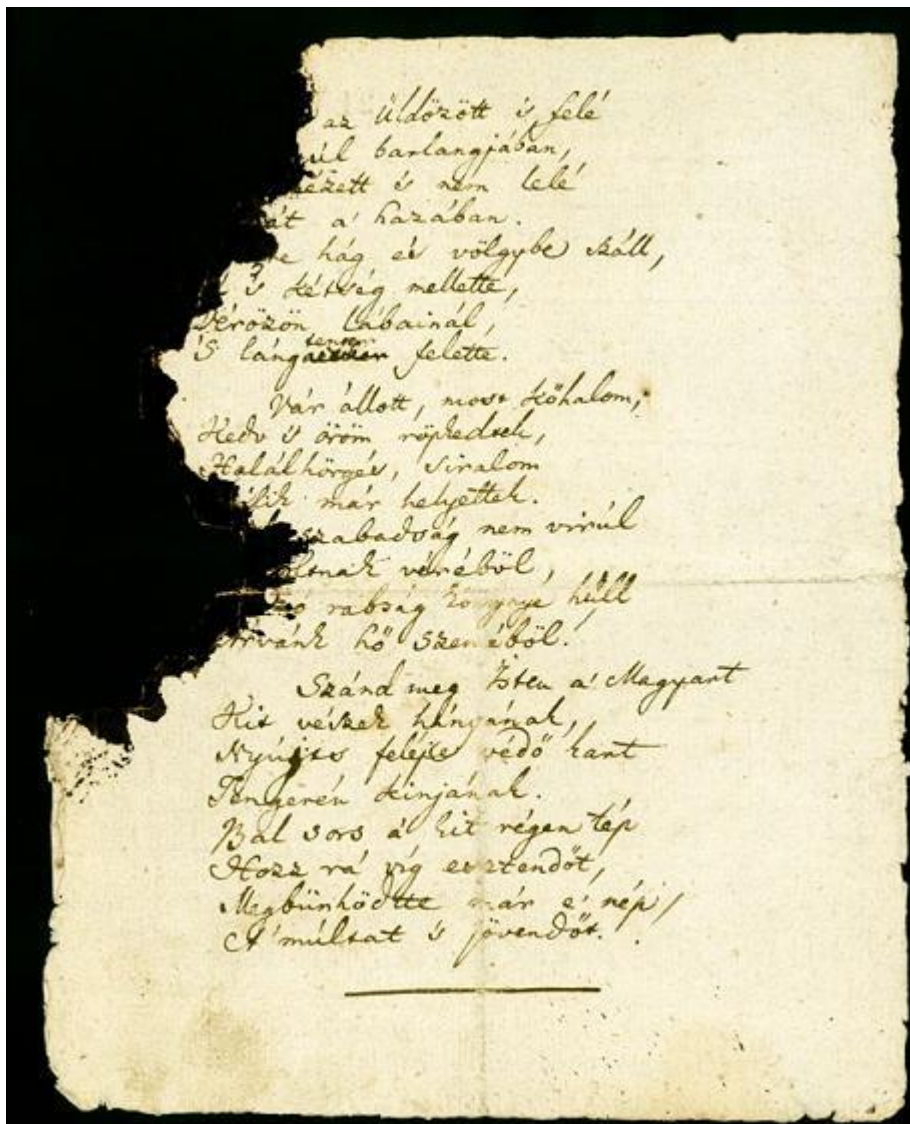 az Üldözött 's felé
úl barlangjában,
nézett és nem lelé
át a' hazában.
re hág és völgybe száll,
's kétség mellette,
Vérözön lábainál,
'S lángtenger felette.
Vár állott, most kőhalom,
Kedv 's öröm röpkedtek,
Halálhörgés, siralom
zik már helyettek.
szabadság nem virúl
oltnak véréből,
rabság könnye hull
Árvánk hő szeméből!
Szánd meg Isten a' Magyart
Kit vészek hányának,
Nyújts feléje védő kart
Tengerén kínjának.
Bal sors a' kit régen tép
Hozz rá víg esztendőt,
Megbünhödte már e' nép
A' múltat 's jövendőt.